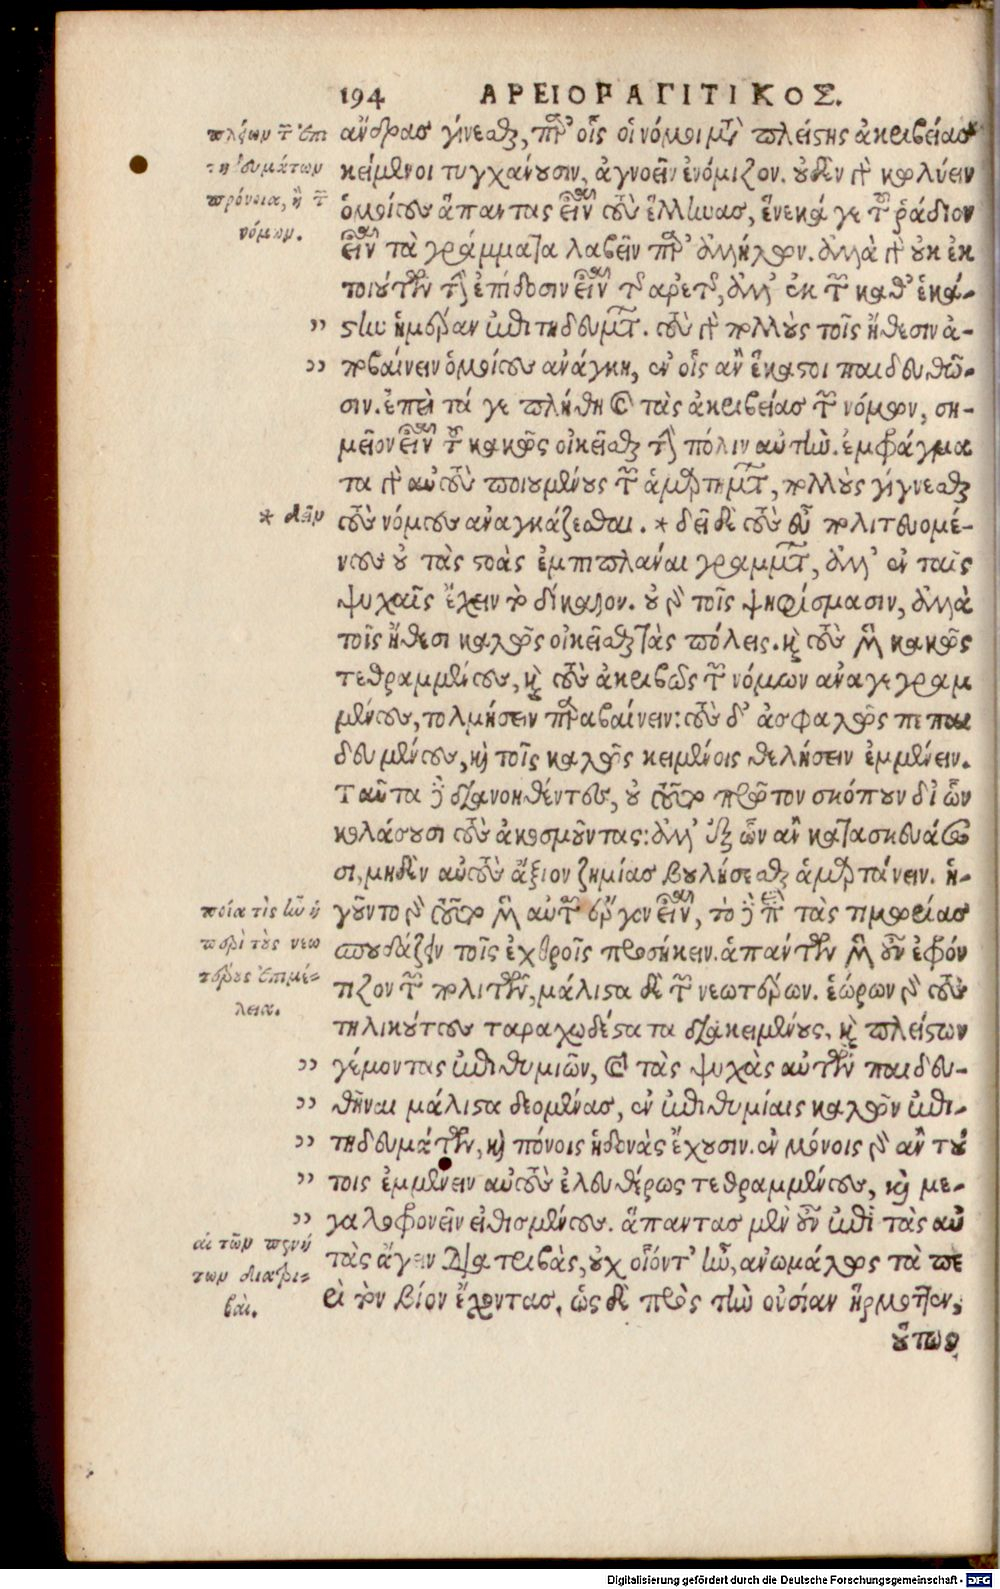 194 ΑΡΕΙΟΠΑΓΙΤΙΚΟΣ.
ἄνδρας γίνεσθαι, παρ' οἷς οἱ νόμοι μετὰ πλείστης ἀκριβείας
κείμενοι τυγχάνουσιν, ἀγνοεῖν ἐνόμιζον. οὐδὲν γὰρ κωλύειν
ὁμοίους ἅπαντας εἶναι τοὺς ἕλληνας, ἕνεκά γε τοῦ ῥάδιον
εἶναι τὰ γράμματα λαβεῖν παρ' ἀλλήλων. ἀλλὰ γὰρ οὐκ ἐκ
τούτων τὴν ἐπίδοσιν εἶναι τῆς ἀρετῆς, ἀλλ' ἐκ τῶν καθ' ἑκά-
στην ἡμέραν ἐπιτηδευμάτων. τοὺς γὰρ πολλοὺς τοῖς ἤθεσιν ἀ-
ποβαίνειν ὁμοίους ἀνάγκη, ἐν οἷς ἂν ἕκαστοι παιδευθῶ-
σιν. ἐπεὶ τά γε πλήθη καὶ τὰς ἀκριβείας τῶν νόμων, ση-
μεῖον εἶναι τοῦ κακῶς οἰκεῖσθαι τὴν πόλιν αὐτήν. ἐμφράγμα
τα γὰρ αὐτοὺς ποιουμένους τῶν ἁμαρτημάτων, πολλοὺς γίγνεσθαι
τοὺς νόμους ἀναγκάζεσθαι. * δεῖ δὲ τοὺς εὖ πολιτευομέ-
νους οὐ τὰς στοὰς ἐμπιπλάναι γραμμάτων, ἀλλ' ἐν ταῖς
ψυχαῖς ἔχειν τὸ δίκαιον. οὐ γὰρ τοῖς ψηφίσμασιν, ἀλλὰ
τοῖς ἤθεσι καλῶς οἰκεῖσθαι τὰς πόλεις. καὶ τοὺς μὲν κακῶς
τεθραμμένους, καὶ τοὺς ἀκριβῶς τῶν νόμων ἀναγεγραμ
μένους, τολμήσειν παραβαίνειν: τοὺς δ' ἀσφαλῶς πεπαι
δευμένους, καὶ τοῖς καλῶς κειμένοις θελήσειν ἐμμένειν.
Ταῦτα διανοηθέντες, οὐ τοῦτο πρῶτον σκόπουν δι' ὧν
κολάσουσι τοὺς ἀκοσμοῦντας: ἀλλ' ἐξ ὧν ἂν κατασκευάσω
σι, μηδὲν αὐτοὺς ἄξιον ζημίας βουλήσεσθαι ἁμαρτάνειν. ἡ-
γοῦντο γὰρ τοῦτο μὲν αὐτῶν ἔργον εἶναι, τὸ δὲ περὶ τὰς τιμωρίας
σπουδάζειν τοῖς ἐχθροῖς προσήκειν. ἁπάντων μὲν οὖν ἐφρόν
τιζον τῶν πολιτῶν, μάλιστα δὲ τῶν νεωτέρων. ἑώρων γὰρ τοὺς
τηλικούτους ταραχωδέστατα διακειμένους, καὶ πλείστων
γέμοντας ἐπιθυμιῶν, καὶ τὰς ψυχὰς αὐτῶν παιδευ-
θῆναι μάλιστα δεομένας, ἐν ἐπιθυμίαις καλῶν ἐπι-
τηδευμάτων, καὶ πόνοις ἡδονὰς ἔχουσιν. ἐν μόνοις γὰρ ἂν τού
τοις ἐμμένειν αὐτοὺς ἐλευθέρως τεθραμμένους, καὶ με-
γαλοφρονεῖν εἰθισμένους. ἅπαντας μὲν οὖν ἐπὶ τὰς αὐ
τὰς ἄγειν διατριβὰς, οὐχ οἷόντ' ἦν, ἀνωμάλως τὰ πε
ρὶ τὸν βίον ἔχοντας. ὡς δὲ πρὸς τὴν οὐσίαν ἥρμοττεν,
οὕτως
πλέων τῶν ἐπι
τηδευμάτων
πρόνοια, ἢ τῶν
νόμων.
* δεῖν
ποία τὶς ἦν ἡ
περὶ τοὺς νεω
τέρους ἐπιμέ-
λεια.
αἱ τῶν πενή
των διατρι-
βαί.
Digitalisierung gefördert durch die Deutsche Forschungsgemeinschaft - DFG